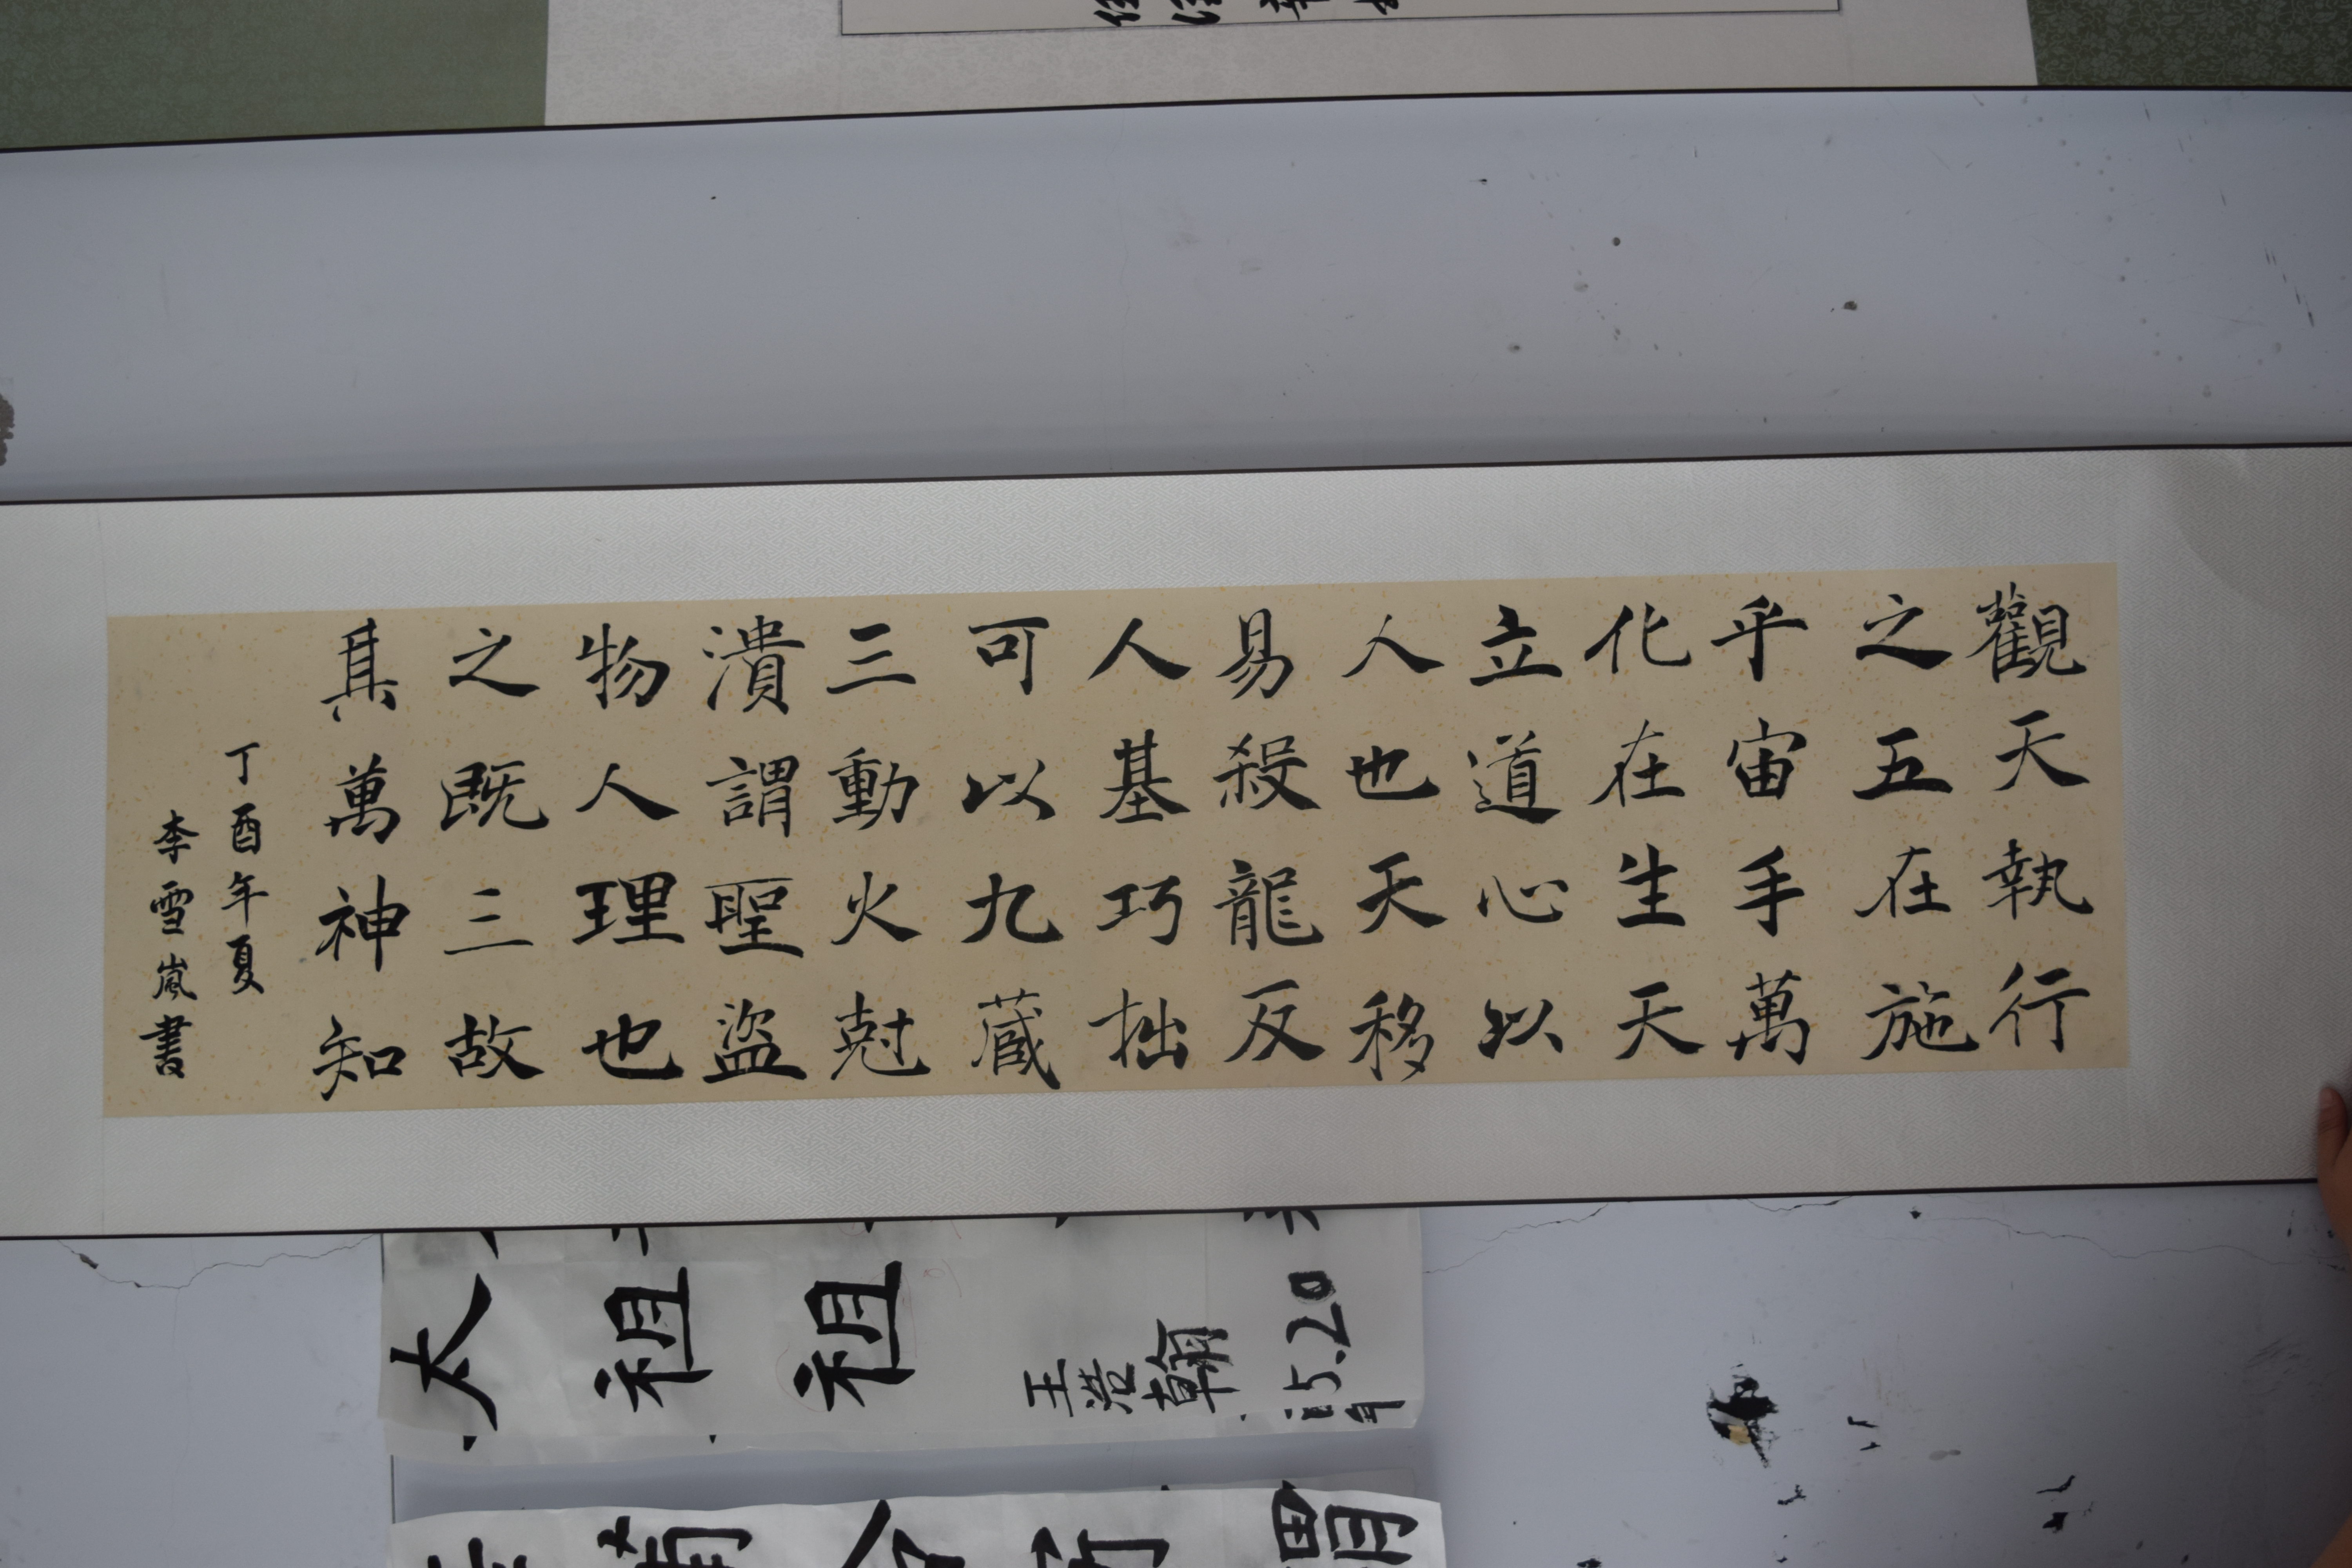 觀天執行
之五在施
乎宙手萬
化在生天
立道心以
人也天移
易殺龍反
人基巧拙
可以九蔵
三動火尅
潰謂聖盜
物人理也
之既三故
其萬神知
丁酉年夏
李雪嵐書
太
祖
祖
王浩翰
5.20